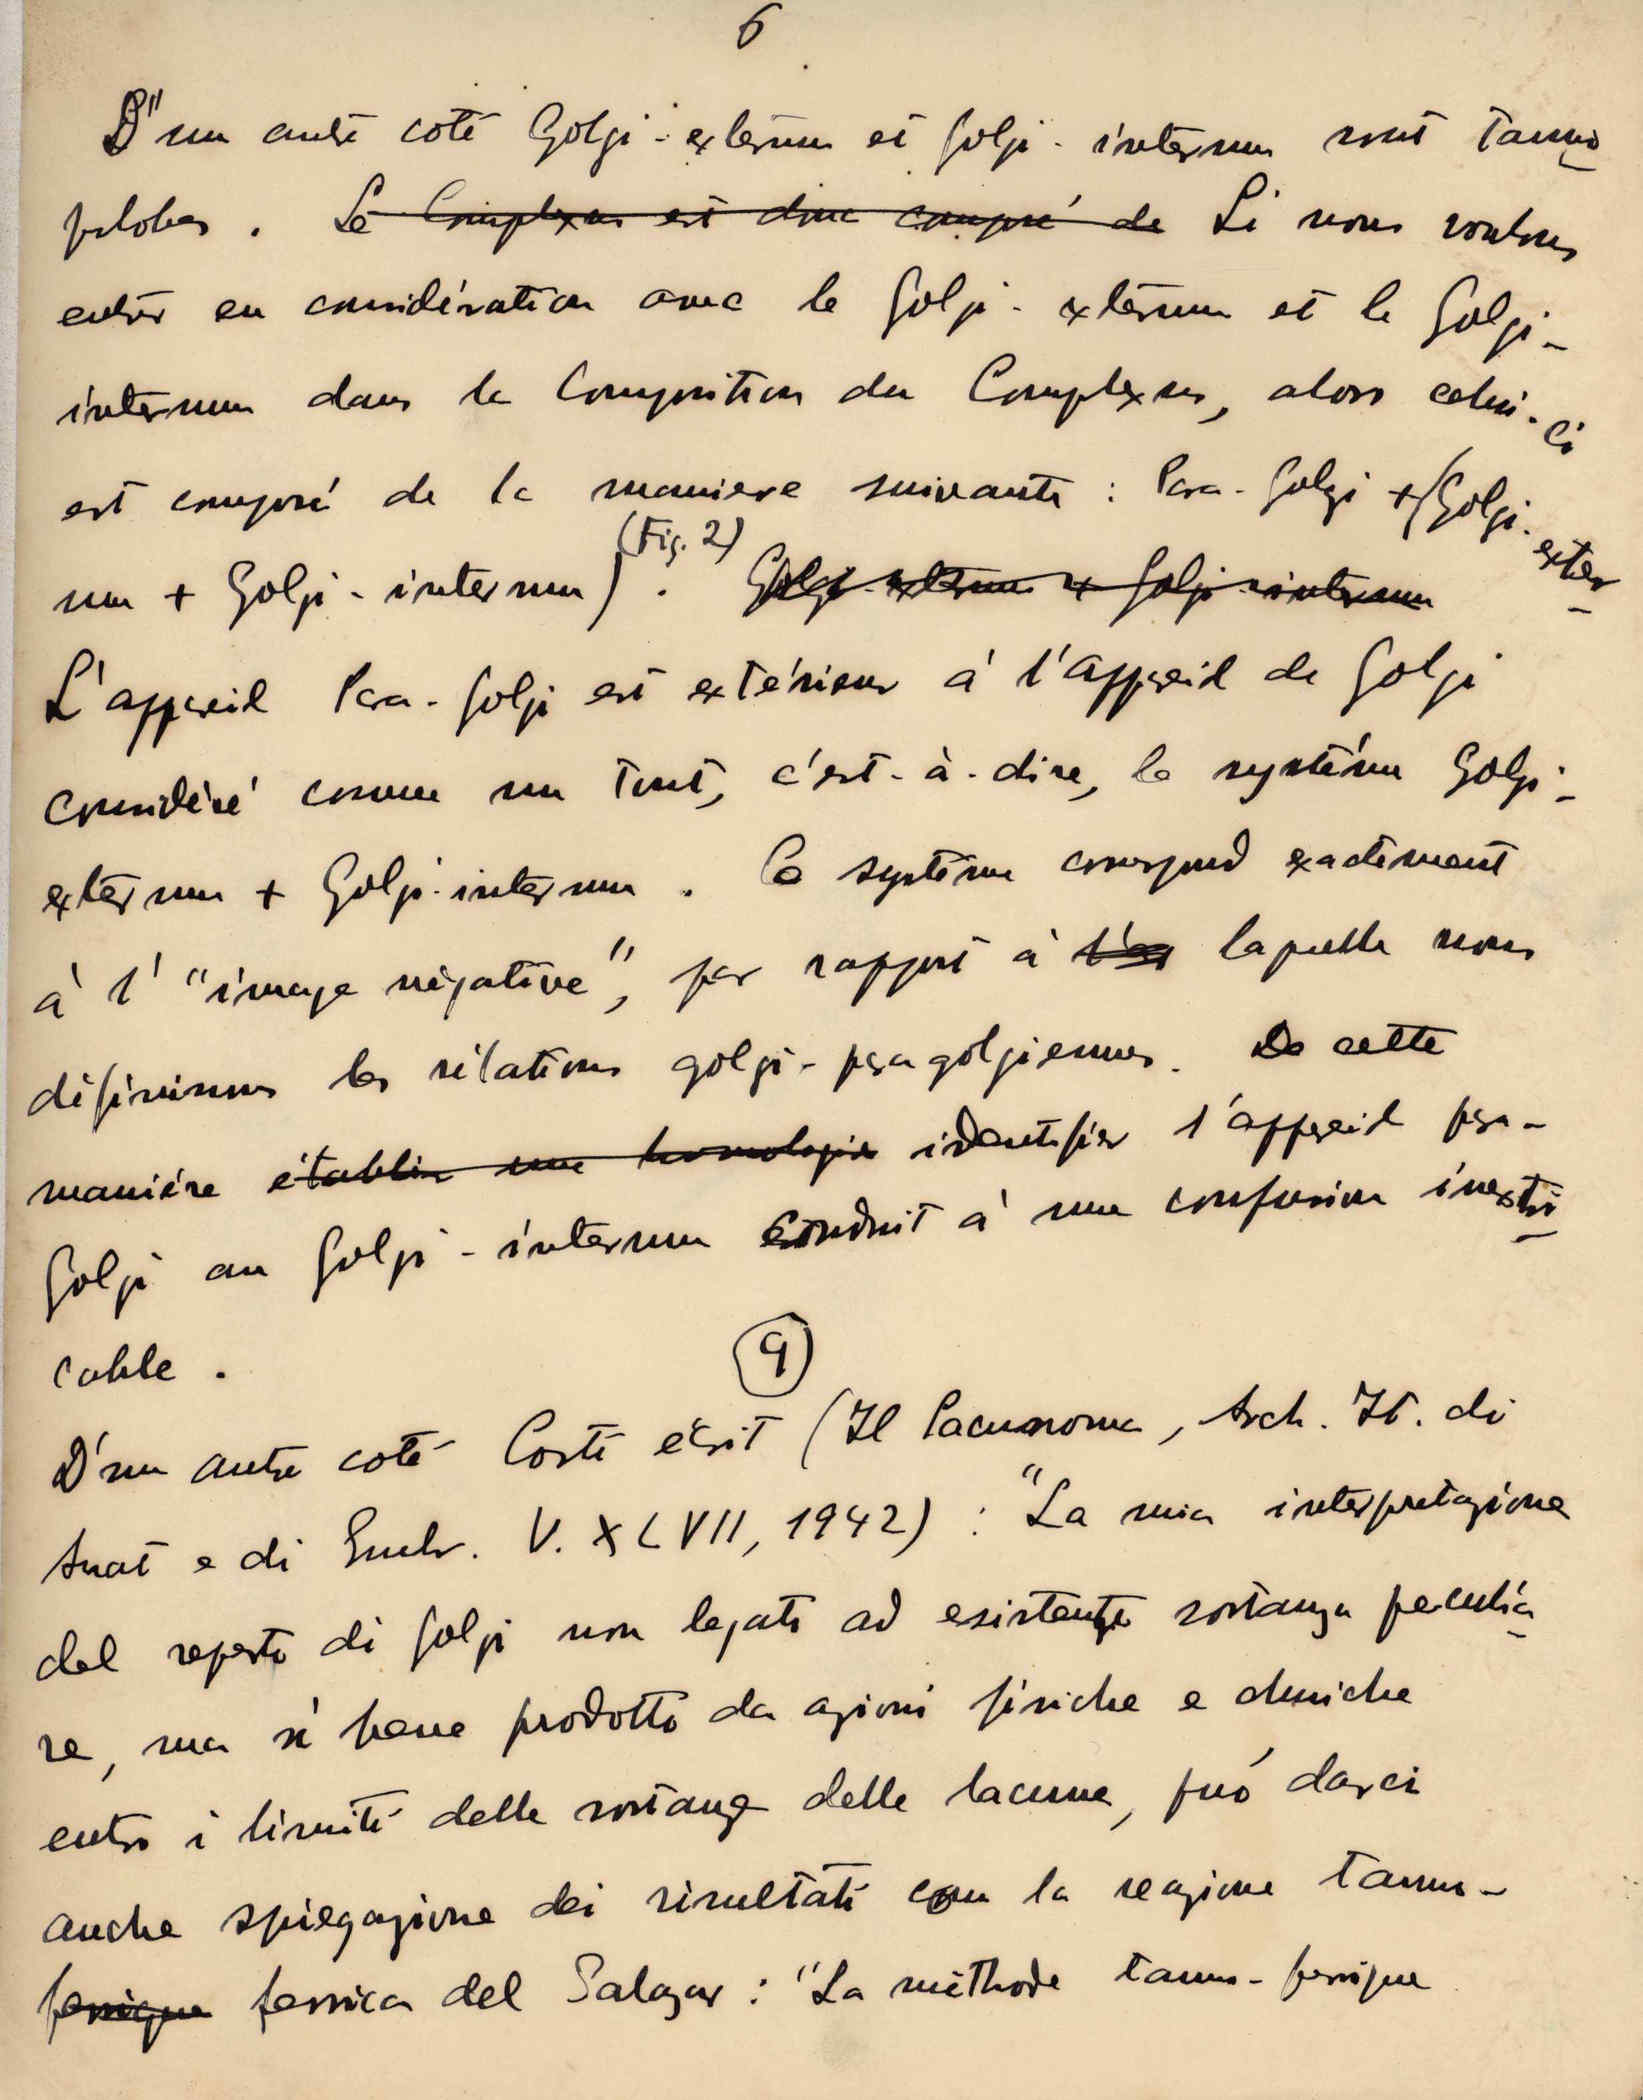 6
D'un autre coté Golgi-externum et Golgi-internum sont tanno
philobes. Le Complexus est donc composé de Si nous voulons
entrer en considération avec le Golgi-externum et le Golgi-
internum dans la Composition du Complexus, alors celui-ci
est composé de la maniere suivante : Para-Golgi + (Golgi-exter
num + Golgi-internum) (Fig. 2). Golgi-externum + Golgi-internum
L'appareil Para-Golgi est extérieur à l'appareil de Golgi
considéré comme un tout, c'est-à-dire, le systéme Golgi-
externum + Golgi-internum. Ce systéme correspond exactement
à l'"image négative", par rapport à laquelle nous
définissons les rélations golgi-paragolgiennes. De cette
maniére établir une homologie identifier l'appareil para-
Golgi au Golgi-internum conduit à une confusion inextri
cable.
9
D'un autre coté Corti écrit (Il Lacunoma, Arch. It. di
Anat e di Embr. V. XLVII, 1942) : "La mia interpretazione
del reperto di Golgi non legato ad esistente sostanza peculia
re, ma si bene prodotto da azioni fisiche e chimiche
entro i limiti delle sostanze delle lacune, puó darci
anche spiegazione dei risultati con la reazione tanno-
ferrique ferrica del Salazar : "La méthode tanno-ferrique